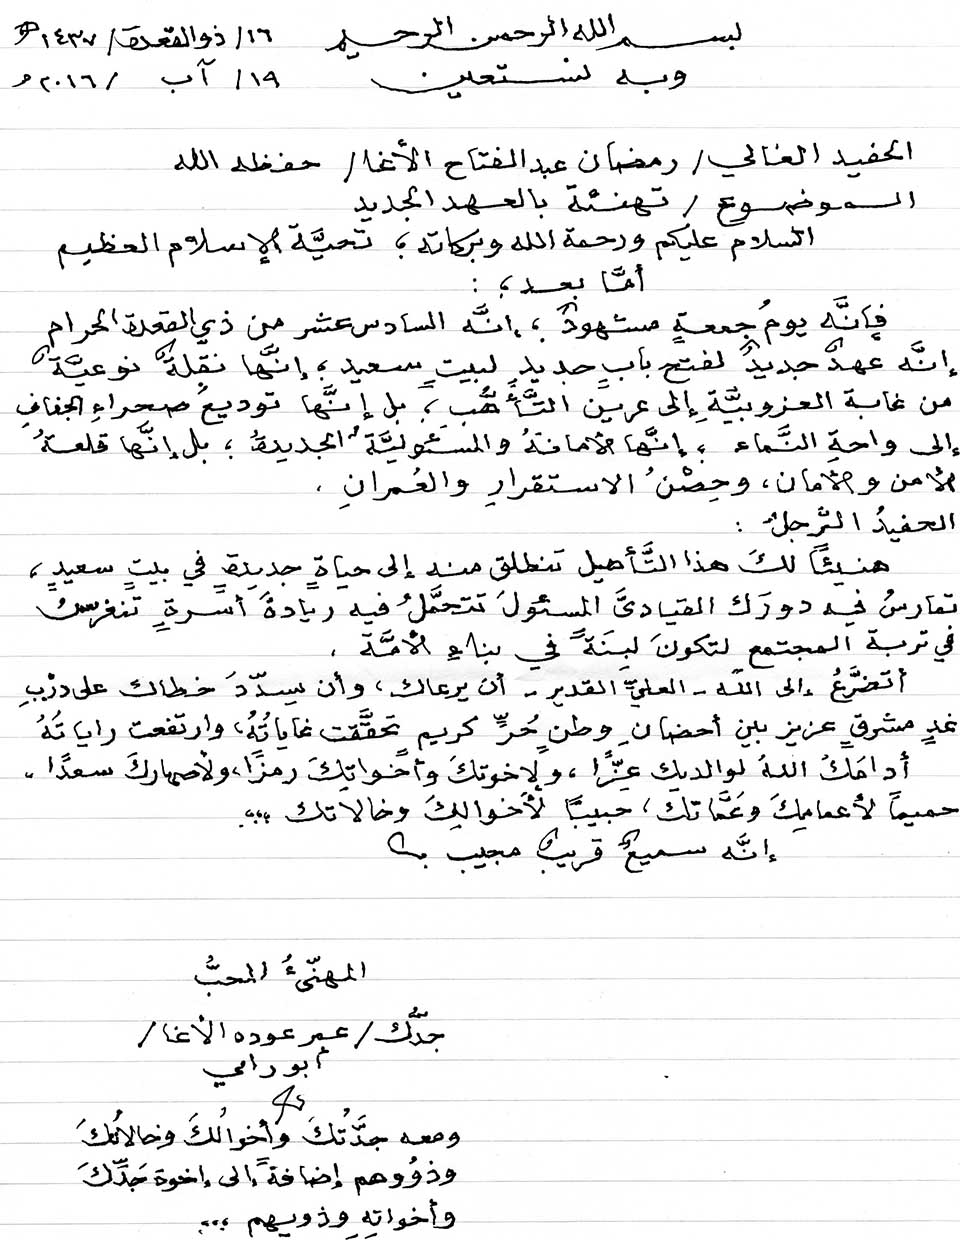 بسم الله الرحمن الرحيم ١٦/ ذو القعدة/ ١٤٣٧هـ
وبه نستعين ١٩/ آب /٢٠١٦م
الحفيد الغالي/ رمضان عبد الفتاح الأغا/ حفظه الله
الموضوع/ تهنئة بالعهد الجديد
السلام عليكم ورحمة الله وبركاته، تحيَّة الإسلام العظيم
أمَّا بعد،:
فإنَّه يومُ جمعةٍ مشهودٌ، إنَّه السادس عشر من ذي القعدة الحرام
إنَّه عهدٌ جديدٌ لفتح بابٍ جديدٍ لبيتٍ سعيدٍ، إنَّها نقلةٌ نوعيَّةٌ
من غابة العزوبيَّةِ إلى عرين التَّأهُّبِ، بل إنَّها توديعُ صحراءِ الجفافِ
إلى واحةِ النَّماء، إنَّها الأمانةُ والمسئوليَّةُ الجديدةُ، بل إنَّها قلعةُ
الأمن والأمان، وحِصْنُ الاستقرارِ والعُمرانِ.
الحفيدُ الرَّجلُ:
هنيئًا لكَ هذا التَّأهيل تنطلق منه إلى حياةٍ جديدةٍ في بيتٍ سعيدٍ،
تمارسُ فيه دورَك القياديَّ المسئولَ تتحمَّلُ فيه ريادةَ أسرةٍ تنغرسُ
في تربة المجتمع لتكونَ لبِنَةً في بناءِ الأمَّة.
أتضرَّعُ إلى اللّه - العليِّ القدير - أن يرعاك، وأن يسدِّدَ خطاك على دربِ
غدٍ مشرقٍ عزيز بين أحضانِ وطنٍ حُرٍّ كريمٍ تحقَّقت غاياتُهُ، وارتفعت راياتُهُ
أدامَكَ اللهُ لوالديك عِزًّا، ولإخوتكَ وأخواتِكَ رمزًا، ولأصهاركَ سعدًا.
حميماً لأعمامِكَ وعَمَّاتك، حبيبًا لأخوالِكَ وخالاتك،،،
إنَّه سميعٌ قريبٌ مجيب
المهنِّئُ المحبُّ
جدُّك/ عمر عوده الأغا/
أبو رامي
ومعه جدَّتُكَ وأخوالُكَ وخالاتُكَ
وذوُوهم إضافةً إلى إخوة جَدِّكَ
وأخواتِهِ وذويهم،،،